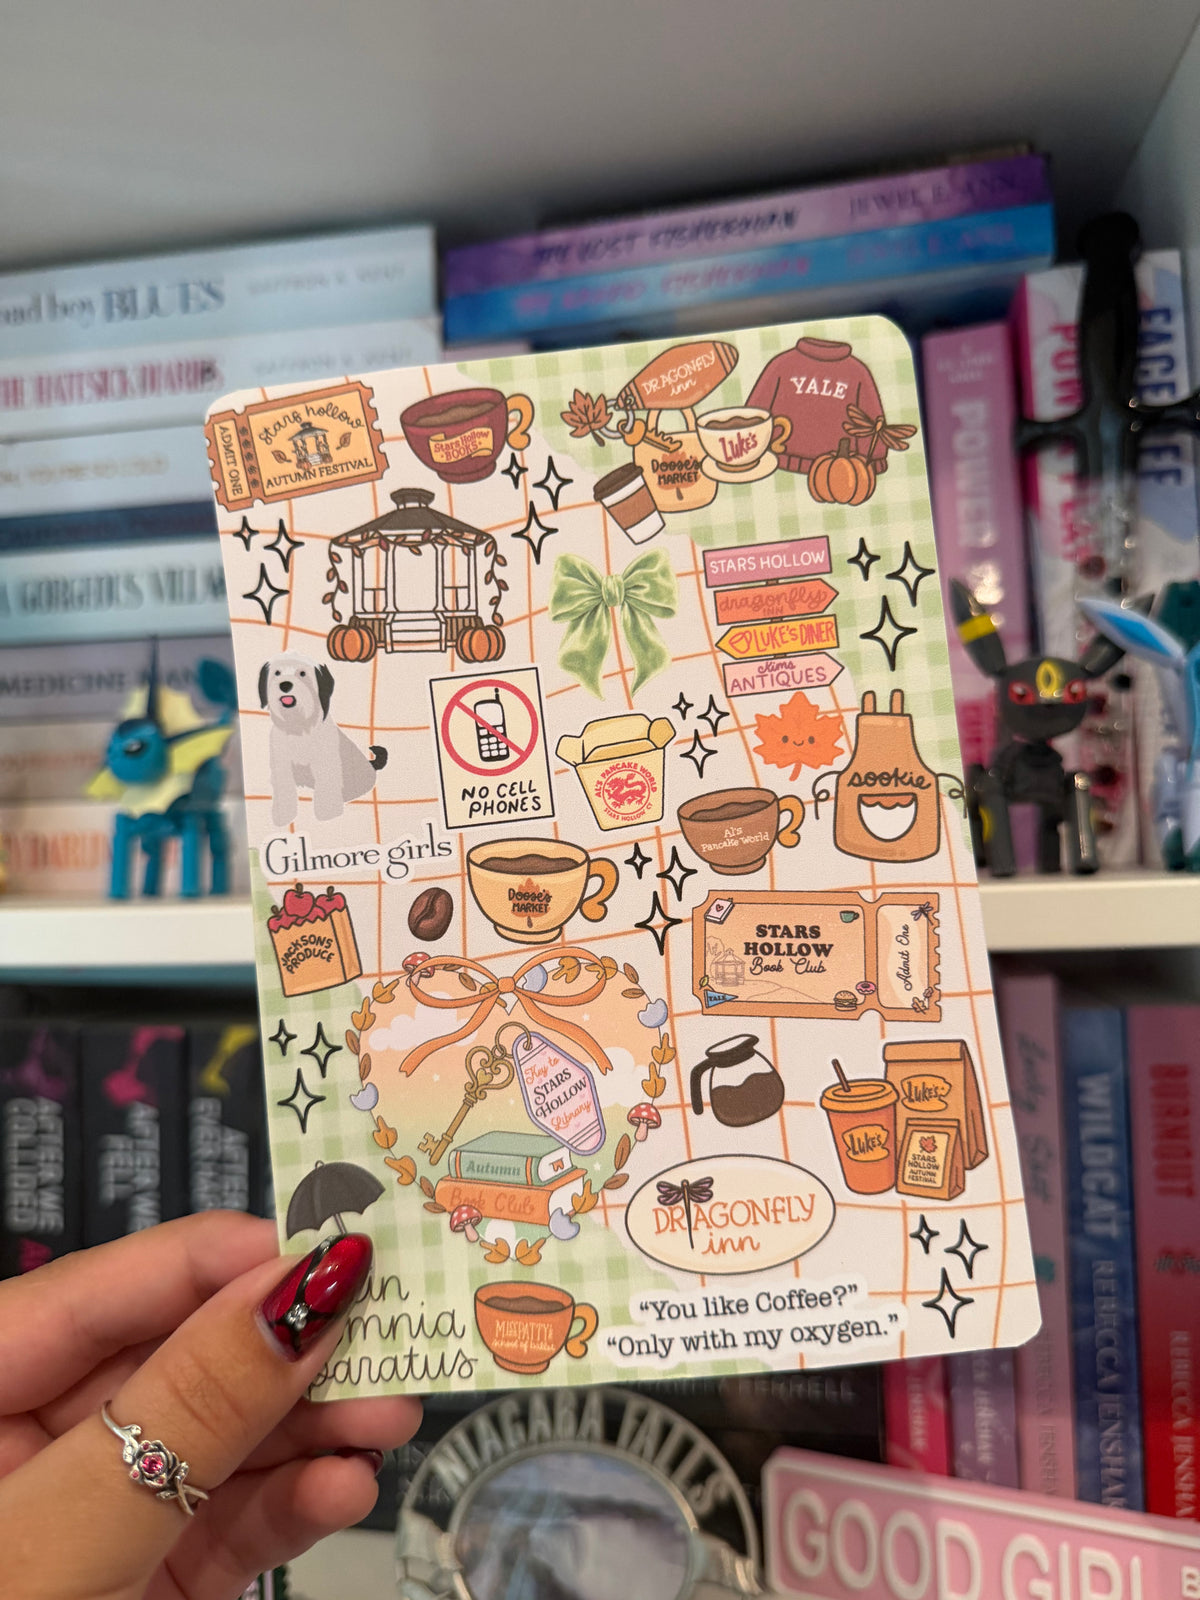 THE LOST FISHERMAN
JEWEL E. ANN
FISHERMAN
bad boy BLUES
SAFFRON A. KENT
THE HATESICK DIARIES
A GORGEOUS VILLA
MEDICINE MAN
POWER
FACE
OFF
stars hollow
ADMIT ONE
AUTUMN FESTIVAL
Stars Hollow
BOOKS
DRAGONFLY
inn
YALE
Luke's
Doose's
MARKET
STARS HOLLOW
dragonfly
INN
LUKE'S DINER
Kims
ANTIQUES
NO CELL
PHONES
AL'S PANCAKE WORLD
STARS HOLLOW, CT
sookie
Al's
Pancake World
Gilmore girls
Doose's
MARKET
JACKSONS
PRODUCE
STARS
HOLLOW
Book Club
Admit One
YALE
Key to
STARS
HOLLOW
Library
Autumn
Book Club
LUKE'S
LUKE'S
STARS
HOLLOW
AUTUMN
FESTIVAL
DRAGONFLY
inn
in
omnia
paratus
MISS PATTY'S
school of ballet
"You like Coffee?"
"Only with my oxygen."
AFTER WE
COLLIDED
AFTER WE
FELL
AFTER
WILDCAT
REBECCA JENSHAK
REBECCA JENSHAK
NIAGARA FALLS
GOOD GIRL